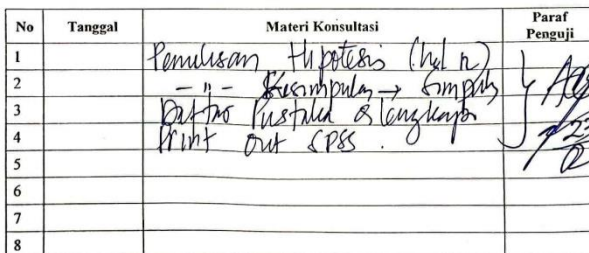 No Tanggal Materi Konsultasi Paraf Penguji
1 Penulisan Hipotesis (hal
2 - " - Kesimpulan → Simpulan
3 Daftar Pustaka dilengkapi
4 Print out SPSS.
5
6
7
8